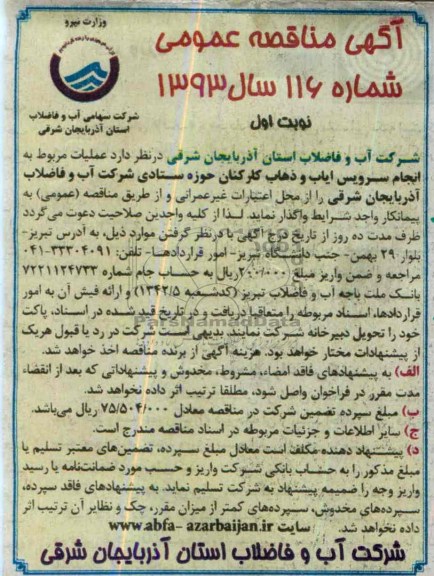 وزارت نیرو
شرکت سهامی آب و فاضلاب
استان آذربایجان شرقی
آگهی مناقصه عمومی
شماره ۱۱۶ سال ۱۳۹۳
نوبت اول
شرکت آب و فاضلاب استان آذربایجان شرقی درنظر دارد عملیات مربوط به
انجام سرویس ایاب و ذهاب کارکنان حوزه ستادی شرکت آب و فاضلاب
آذربایجان شرقی را از محل اعتبارات غیرعمرانی و از طریق مناقصه (عمومی) به
پیمانکار واجد شرایط واگذار نماید. لذا از کلیه واجدین صلاحیت دعوت می‌گردد
ظرف مدت ده روز از تاریخ درج آگهی با درنظر گرفتن موارد ذیل، به آدرس تبریز-
بلوار ۲۹ بهمن- جنب دانشگاه تبریز- امور قراردادها- تلفن: ۳۳۳۰۴۰۹۱-۰۴۱
مراجعه و ضمن واریز مبلغ ۲۰۰/۰۰۰ ریال به حساب جام شماره ۷۲۲۱۱۲۴۷۳۳
بانک ملت باجه آب و فاضلاب تبریز (کدشعبه ۱۳۴۲/۵) و ارائه فیش آن به امور
قراردادها، اسناد مربوطه را متعاقبا دریافت و در تاریخ قید شده در اسناد، پاکت
خود را تحویل دبیرخانه شرکت نمایند. بدیهی است شرکت در رد یا قبول هریک
از پیشنهادات مختار خواهد بود. هزینه آگهی از برنده مناقصه اخذ خواهد شد.
الف) به پیشنهادهای فاقد امضاء، مشروط، مخدوش و پیشنهاداتی که بعد از انقضاء
مدت مقرر در فراخوان واصل شود، مطلقا ترتیب اثر داده نخواهد شد.
ب) مبلغ سپرده تضمین شرکت در مناقصه معادل ۷۵/۵۰۴/۰۰۰ ریال می‌باشد.
ج) سایر اطلاعات و جزئیات مربوطه در اسناد مناقصه مندرج است.
د) پیشنهاد دهنده مکلف است معادل مبلغ سپرده، تضمین‌های معتبر تسلیم یا
مبلغ مذکور را به حساب بانکی شرکت واریز و حسب مورد ضمانت‌نامه یا رسید
واریز وجه را ضمیمه پیشنهاد به شرکت تسلیم نماید. به پیشنهادهای فاقد سپرده،
سپرده‌های مخدوش، سپرده‌های کمتر از میزان مقرر، چک و نظایر آن ترتیب اثر
داده نخواهد شد. سایت www.abfa- azarbaijan.ir
شرکت آب و فاضلاب استان آذربایجان شرقی
ParsNamadData